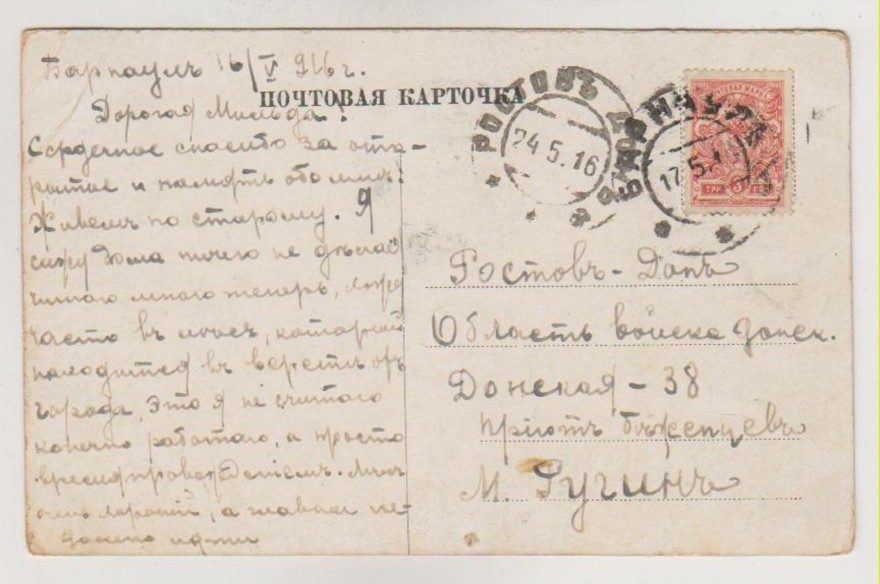 Барнаулъ 16/V 916 г.
ПОЧТОВАЯ КАРТОЧКА
Дорогая Мильда!
Сердечное спасибо за отк-
рытие и память обо мнѣ.
Живемъ по старому. Я
сижу дома ничего не дѣлаю
читаю много теперь, хожу
часто въ лѣсъ, который
находится въ верстѣ отъ
города, это я не считаю
конечно работаю, а просто
время провожденiемъ. Лѣсъ
очень хорошiй, а главное не-
далеко идти
РОСТОВЪ Д
24 5.16
БАРНАУЛЪ
17.5.16
Ростовъ-Донъ
Область войска донск.
Донская - 38
прiютъ бѣженцевъ
М. Ругинъ